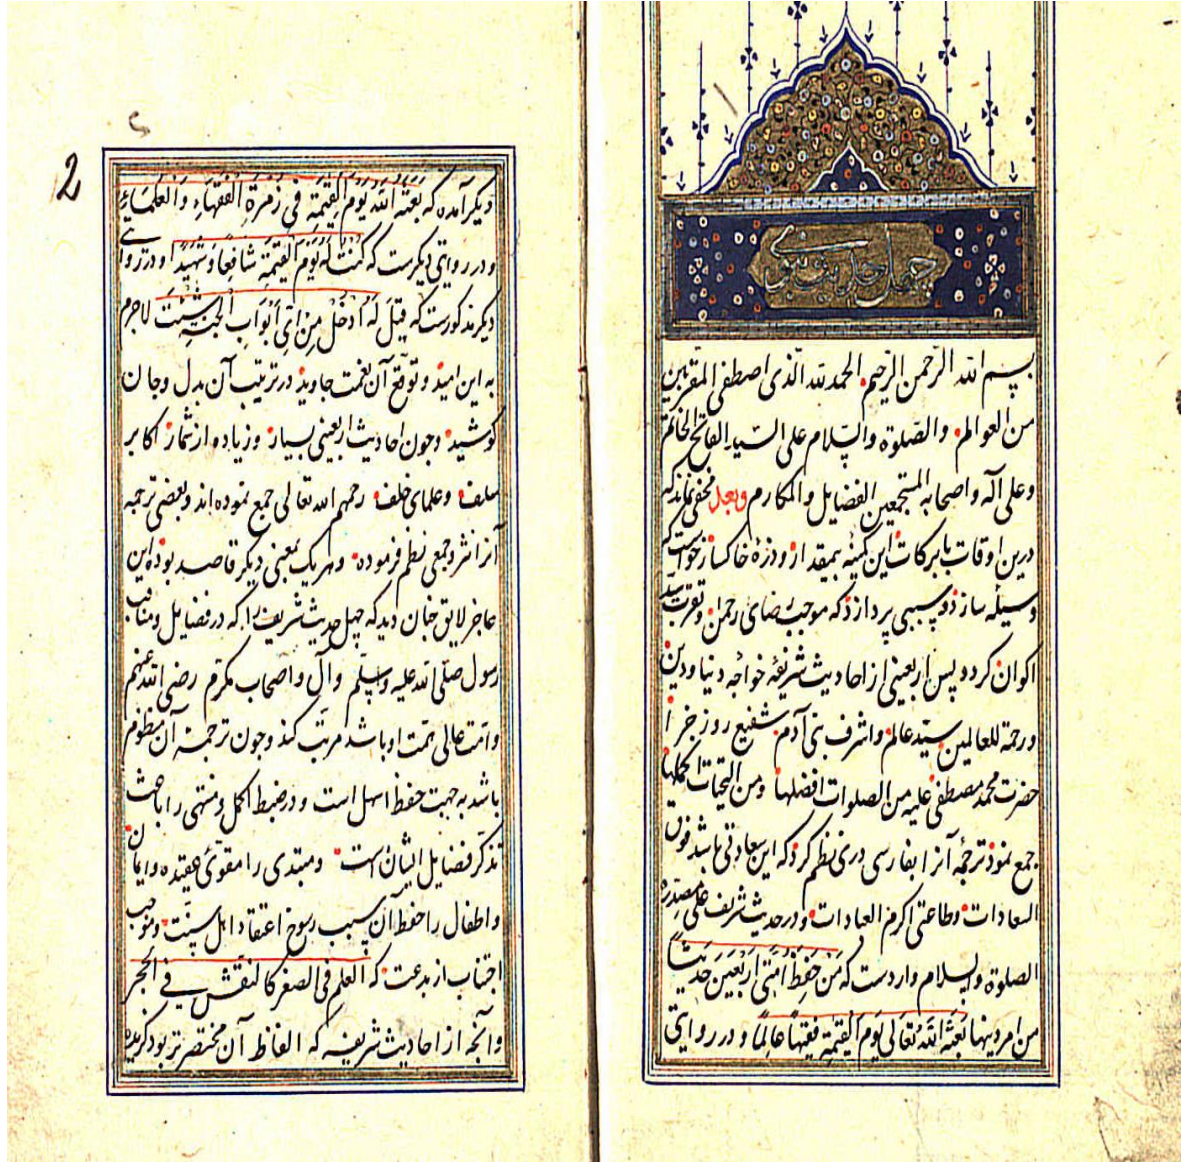 چهل حدیث نبوی
بسم الله الرّحمن الرّحیم الحمد لله الّذی اصطفی المقربین
من العوالم والصّلوة والسّلام علی السّید الفاتح الخاتم
وعلی آله واصحابه المستجمعین الفضایل والمکارم وبعد مخفی نماند که
درین اوقات بابرکات این کمینهٔ بیمقدار وذرّهٔ خاکسار خواست که
وسیله سازد وسببی پردازد که موجب رضای رحمان وتقرب سید
اکوان کردد پس اربعینی از احادیث شریفهٔ خواجه دنیا ودین
ورحمة للعالمین سیّد عالم واشرف بنی آدم شفیع روز جزا
حضرت محمد مصطفی علیه من الصلوات افضلها ومن التحیات اکملها
جمع نمود ترجمهٔ آنرا بفارسی دری نظم کرد که این سعادتی باشد فوق
السعادات وطاعتی اکرم العبادات ودر حدیث شریف علی مصدره
الصلوة والسلام واردست که مَنْ حَفِظَ اُمَّتی اَرْبَعینَ حَدیثاً
من امر دینها بَعَثَهُ اللّهُ تَعَالی یَوْمَ الْقِیٰمَةِ فَقیهًا عَالِمًا ودر روایتی
2
دیکر آمده که بَعَثَهُ اللّه یَوْمَ الْقِیٰمَةِ فی زُمْرَةِ الْفُقَهَاءِ وَالْعُلَمَاءِ
ودر روایتی دیکرست که کُنْتُ لَهُ یَوْمَ الْقِیٰمَةِ شَافِعًا وَشَهیدًا ودر روایتی
دیکر مذکورست که قیلَ لَهُ اُدْخُلْ مِنْ اَیِّ اَبْوَابِ الْجَنَّةِ شِئْتَ لاجرم
به این امید وتوقع آن نعمت جاوید در ترتیب آن بدل وجان
کوشید وچون احادیث اربعینی بسیار وزیاده از شمار اکابر
سلف وعلمای خلف رحمهم الله تعالی جمع نموده اند وبعضی ترجمه
آنرا نثر وجمعی نظم فرموده وهریک بمعنی دیکر قاصد بوده این
عاجز لایق چنان دید که چهل حدیث شریف را که در فضایل ومناقب
رسول صلّی الله علیه وسلّم وآل واصحاب مکرّم رضی الله عنهم
وامّت عالی همت او باشد مرتب کند وچون ترجمهٔ آن منظوم
باشد به جهت حفظ اسهل است ودر ضبط اکمل ومنتهی را باعث
تذکر فضایل ایشان است ومبتدی را مقوّی عقیده وایمان
واطفال را حفظ آن سبب رسوخ اعتقاد اهل سنّت وموجب
اجتناب از بدعت که العلم فی الصغر کالنقش فی الحجر
وآنچه از احادیث شریفه که الفاظ آن مختصرتر بود کزیده